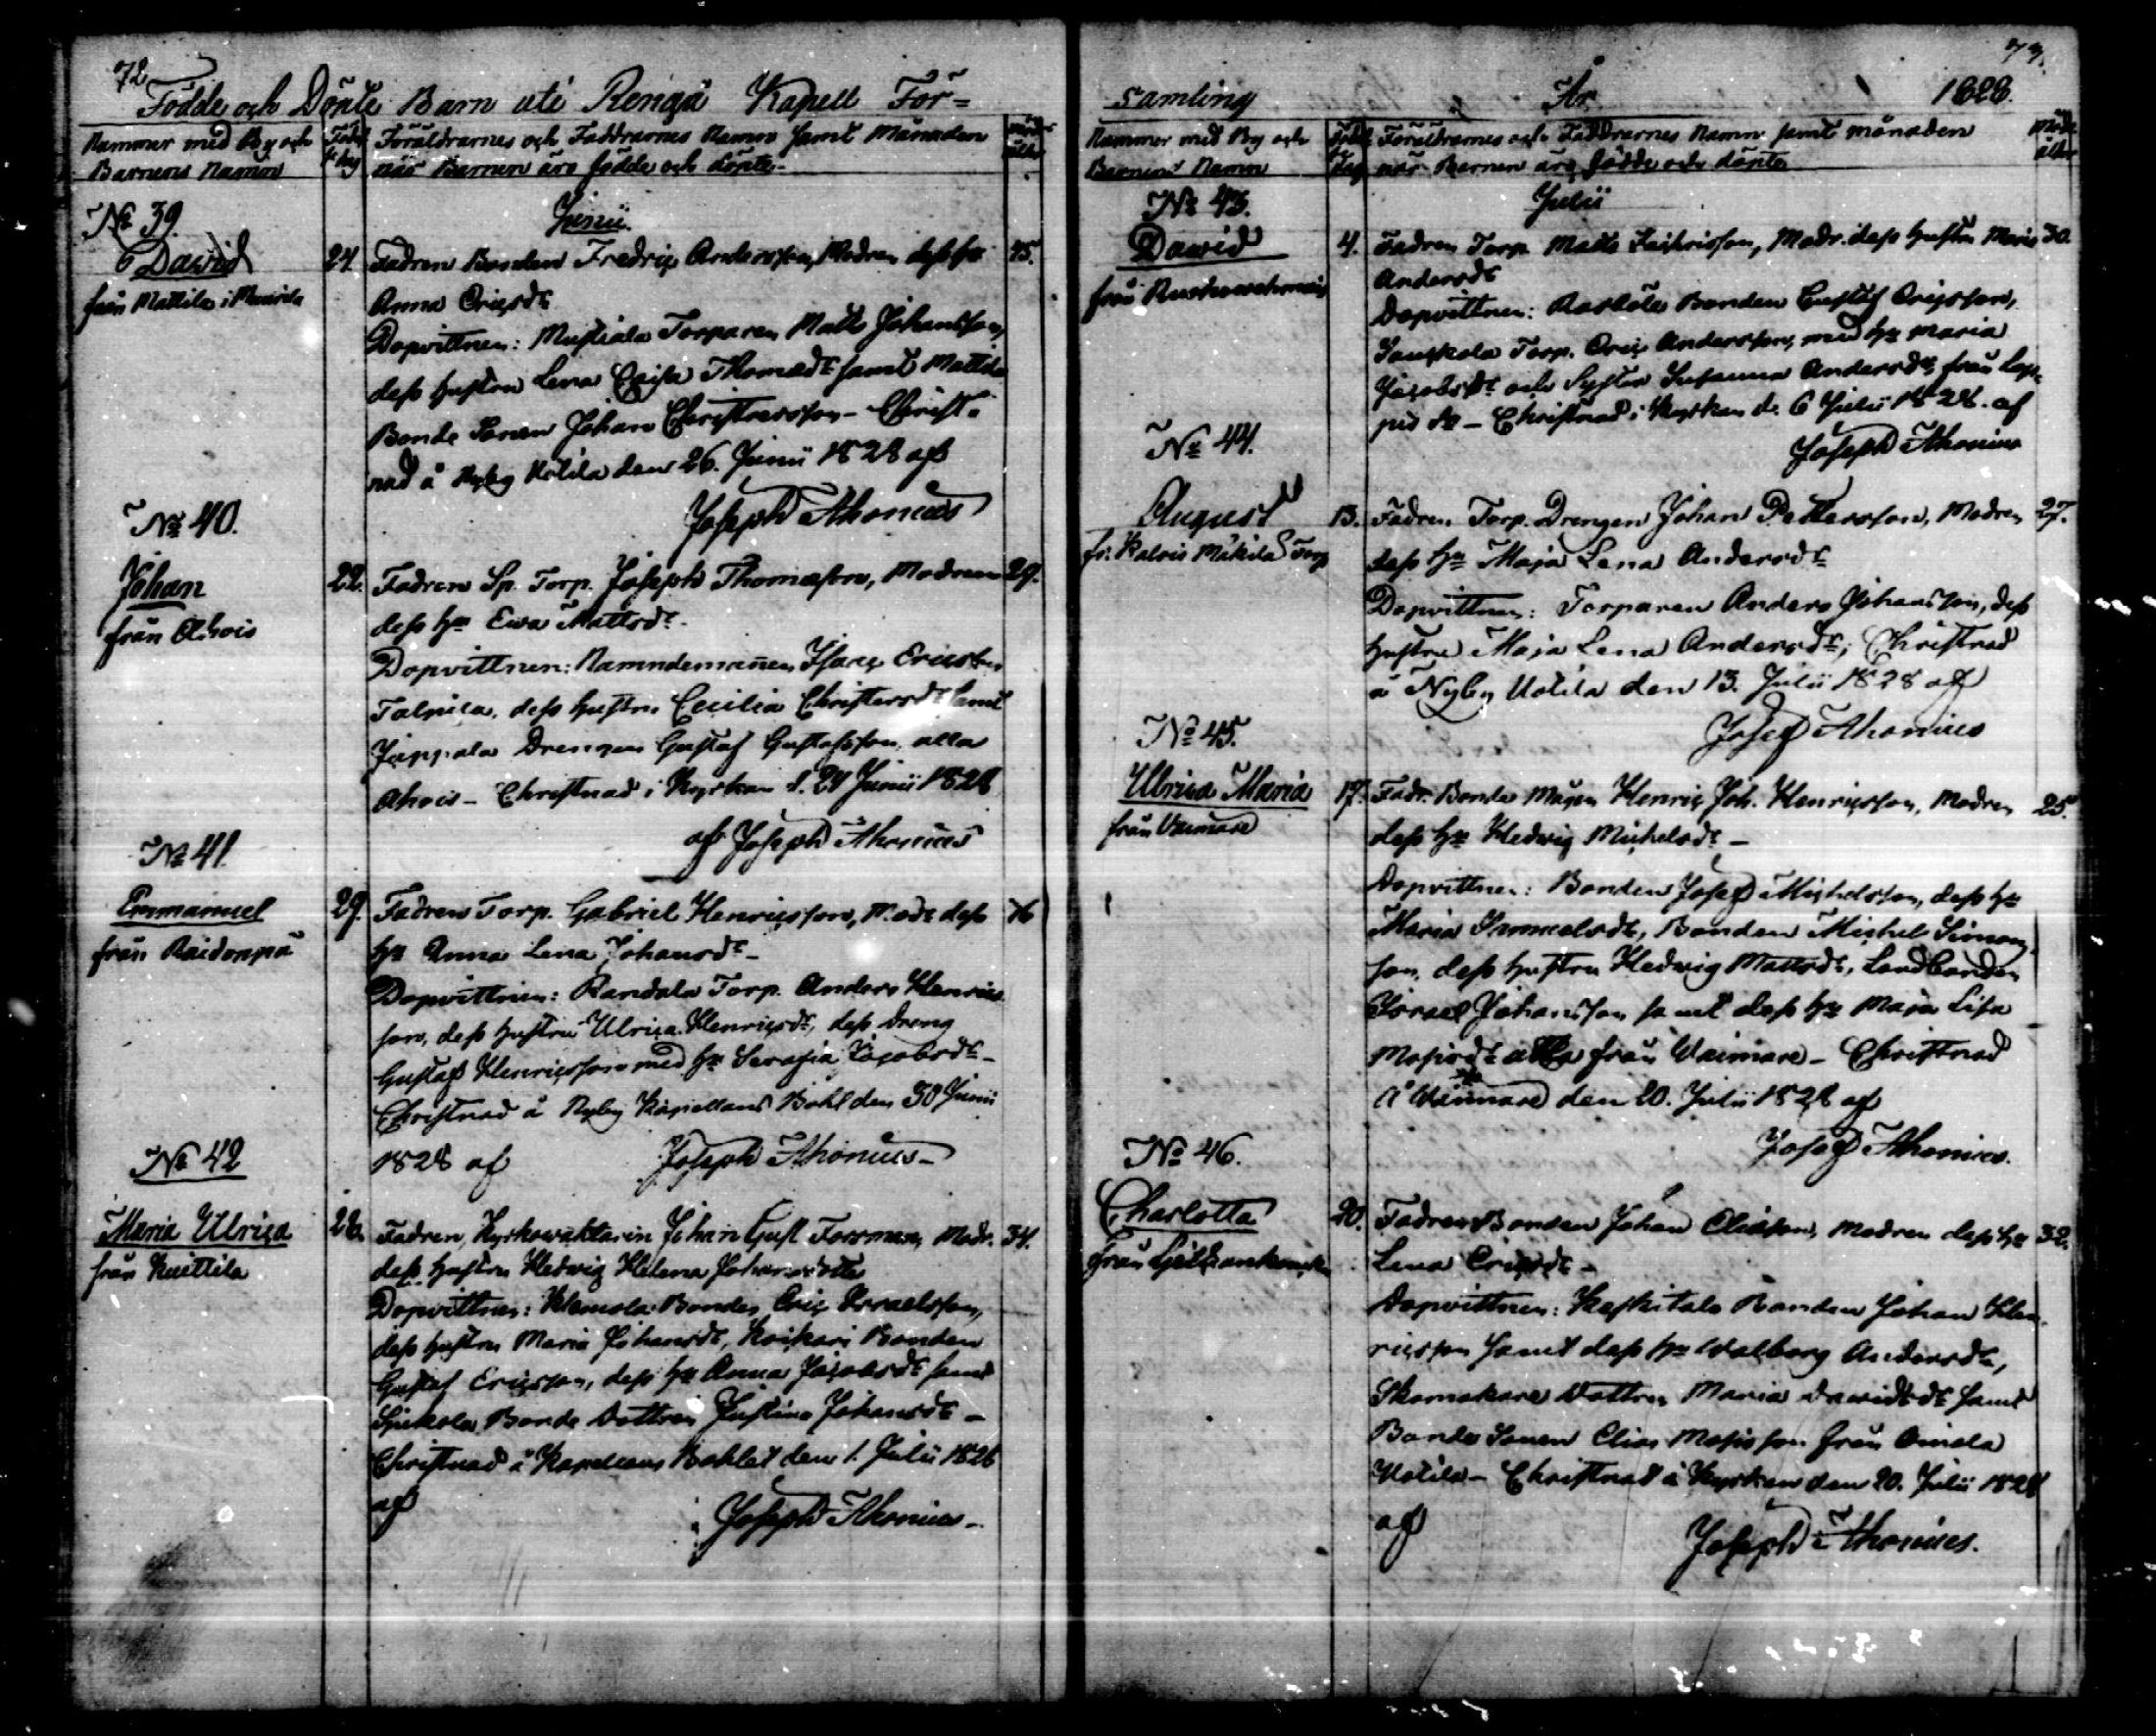 72
Födde och Döpte Barn uti Rengå Kapell För=
Nummer med By och
Barnens Namn
Föräldrarnes och Faddrarnes Namn samt Månaden
när Barnen äro födde och döpte.
Junii
No 39.
David
från Mattila i
24. Fadren Bonden Fredric Andersson, Modren dess hu 45.
Anna Ericsdr
Dopvittnen: Mustiala Torparen Matts Johansson,
dess hustru Lena Caisa Thomædr samt Mattila
Bonde Sonen Johan Christersson - Christ-
nad å Nyby Uotila den 26. Junii 1828 af
Joseph Ahonius
No 40.
Johan
från Ahois
22. Fadren Sp. Torp. Joseph Thomæson, Modren 29.
dess hu Ewa Mattsdr.
Dopvittnen: Nämndemannen Isaac Ericsson
Talpila, dess hustru Cecilia Christersdr samt
Jappala Drengen Gustaf Gustafsson, alla
Ahois - Christnad i Kyrkan d. 24 Junii 1828
af Joseph Ahonius
No 41.
Emmanuel
från Raidonpä
29. Fadren Torp. Gabriel Henricsson, Modr dess
hu Anna Lena Johansdr -
Dopvittnen: Randala Torp. Anders Henrics
son, dess hustru Ulrica Henricsdr, dess Dreng
Gustaf Henricsson med hu Serafia Jacobsdr -
Christnad å Nyby Kapellans Bohl den 30 Junii
1828 af Joseph Ahonius -
No 42
Maria Ulrica
från Kuittila
28. Fadren, Kyrkowaktaren Johan Gust Forsman, Modr. 34.
dess hustru Hedwig Helena Johansdotter
Dopvittnen: Klemola Bonden Eric Israelsson,
dess hustru Maria Johansdr, Koikari Bonden
Gustaf Ericsson, dess hu Anna Jacobsdr samt
Bonde Dottren Justina Johansdr -
Christnad å Kapellans Bohlet den 1. Julii 1828
af Joseph Ahonius -
73.
Samling År 1828.
Nummer med By och
Barnens Namn
Föräldrarnes och Faddrarnes Namn samt månaden
när Barnen äro födde och döpte
Julii
No 43.
David
från
4. Fadren Torp. Matts Zachrisson, Modr. dess hustru Maria 30.
Andersdr
Dopvittnen: Bonden Gustaf Ericsson,
Torp. Eric Andersson, med hu Maria
Jacobsdr och Syster Susanna Andersdr från Lop-
pis - Christnad i Kyrkan d. 6 Julii 1828. af
Joseph Ahonius
No 44.
August
fr. Kalois Mäkilä Torp
13. Fadren Torp. Drengen Johan Pettersson, Modren 27.
dess hu Maja Lena Andersdr
Dopvittnen: Torparen Anders Johansson, dess
hustru Maja Lena Andersdr; Christnad
å Nyby Uotila den 13. Julii 1828 af
Josef Ahonius
No 45.
Ulrica Maria
från Waimare
17. Fadr. Bonde Mågen Henric Joh. Henricsson, Modren 25.
dess hu Hedwig Michelsdr -
Dopvittnen: Bonden Josef Michelsson, dess hu
Maria Immanuelsdr, Bonden Michel Simons-
son, dess hustru Hedwig Mattsdr, Landbonden
Israel Johansson samt dess hu Maja Lisa
Mosisdr alla från Waimare - Christnad
å Waimare den 20. Julii 1828 af
Josef Ahonius.
No 46.
Charlotta
från
20. Fadren Bonden Johan Eliasson, Modren dess hu 32.
Lena Ericsdr -
Dopvittnen: Keskitalo Bonden Johan Hen-
ricsson samt dess hu Walborg Andersdr,
Skomakare Dottren Maria Davidsdr samt
Bonde Sonen Elias Mosisson från
Uotila - Christnad i Kyrkan den 20. Julii 1828
af Joseph Ahonius.